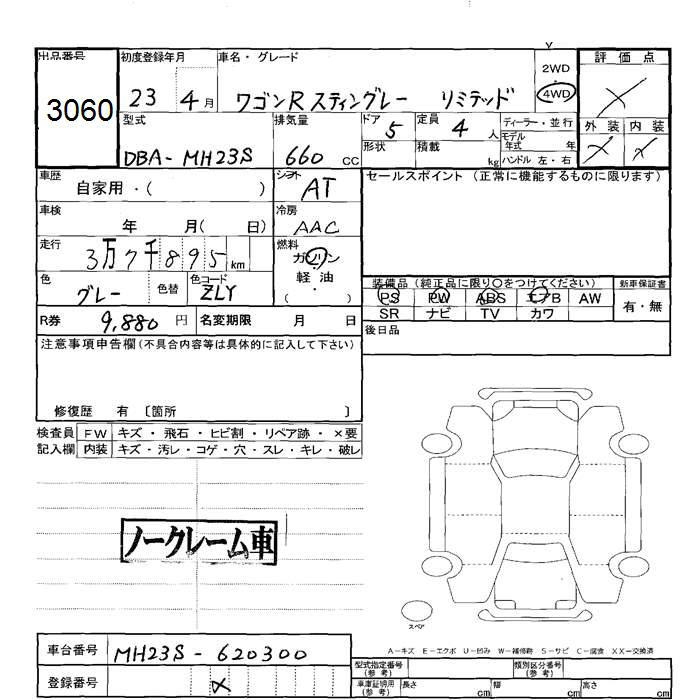 出品番号
3060
初度登録年月
23 4月
車名・グレード
ワゴンR スティングレー リミテッド
2WD
4WD
評価点
外装 内装
型式
DBA-MH23S
排気量
660 CC
ドア 5
形状
定員 4 人
積載 kg
ディーラー・並行
モデル年式 年
ハンドル 左・右
車歴
自家用・( )
シフト
AT
車検
年 月( 日)
冷房
AAC
走行
3万7千895 km
燃料
ガソリン
軽油
( ・ )
色
グレー
色替
色コード
ZLY
R券 9,880 円
名変期限 月 日
セールスポイント(正常に機能するものに限ります)
装備品(純正品に限り○をつけてください)
新車保証書
PS PW ABS エアB AW
有・無
SR ナビ TV カワ
後日品
注意事項申告欄(不具合内容等は具体的に記入して下さい)
修復歴 有 〔箇所 〕
検査員記入欄
FW キズ・飛石・ヒビ割・リペア跡・×要
内装 キズ・汚レ・コゲ・穴・スレ・キレ・破レ
ノークレーム車
スペア
A−キズ E−エクボ U−凹み W−補修跡 S−サビ C−腐食 XX−交換済
車台番号 MH23S-620300
登録番号
型式指定番号(参考)
類別区分番号(参考)
車庫証明用(参考)
長さ cm 幅 cm 高さ cm